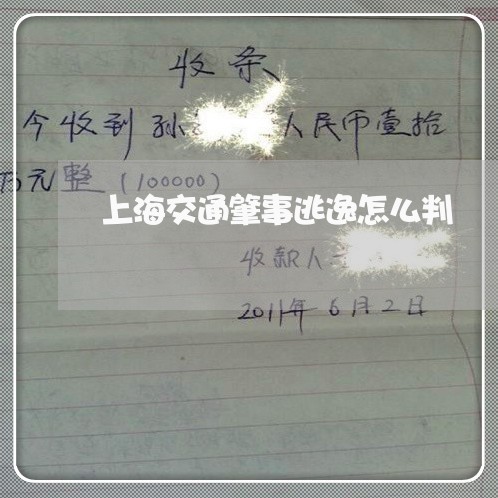 收条
今收到孙 人民币壹拾
万元整（100000）
上海交通肇事逃逸怎么判
收款人
2011年6月2日